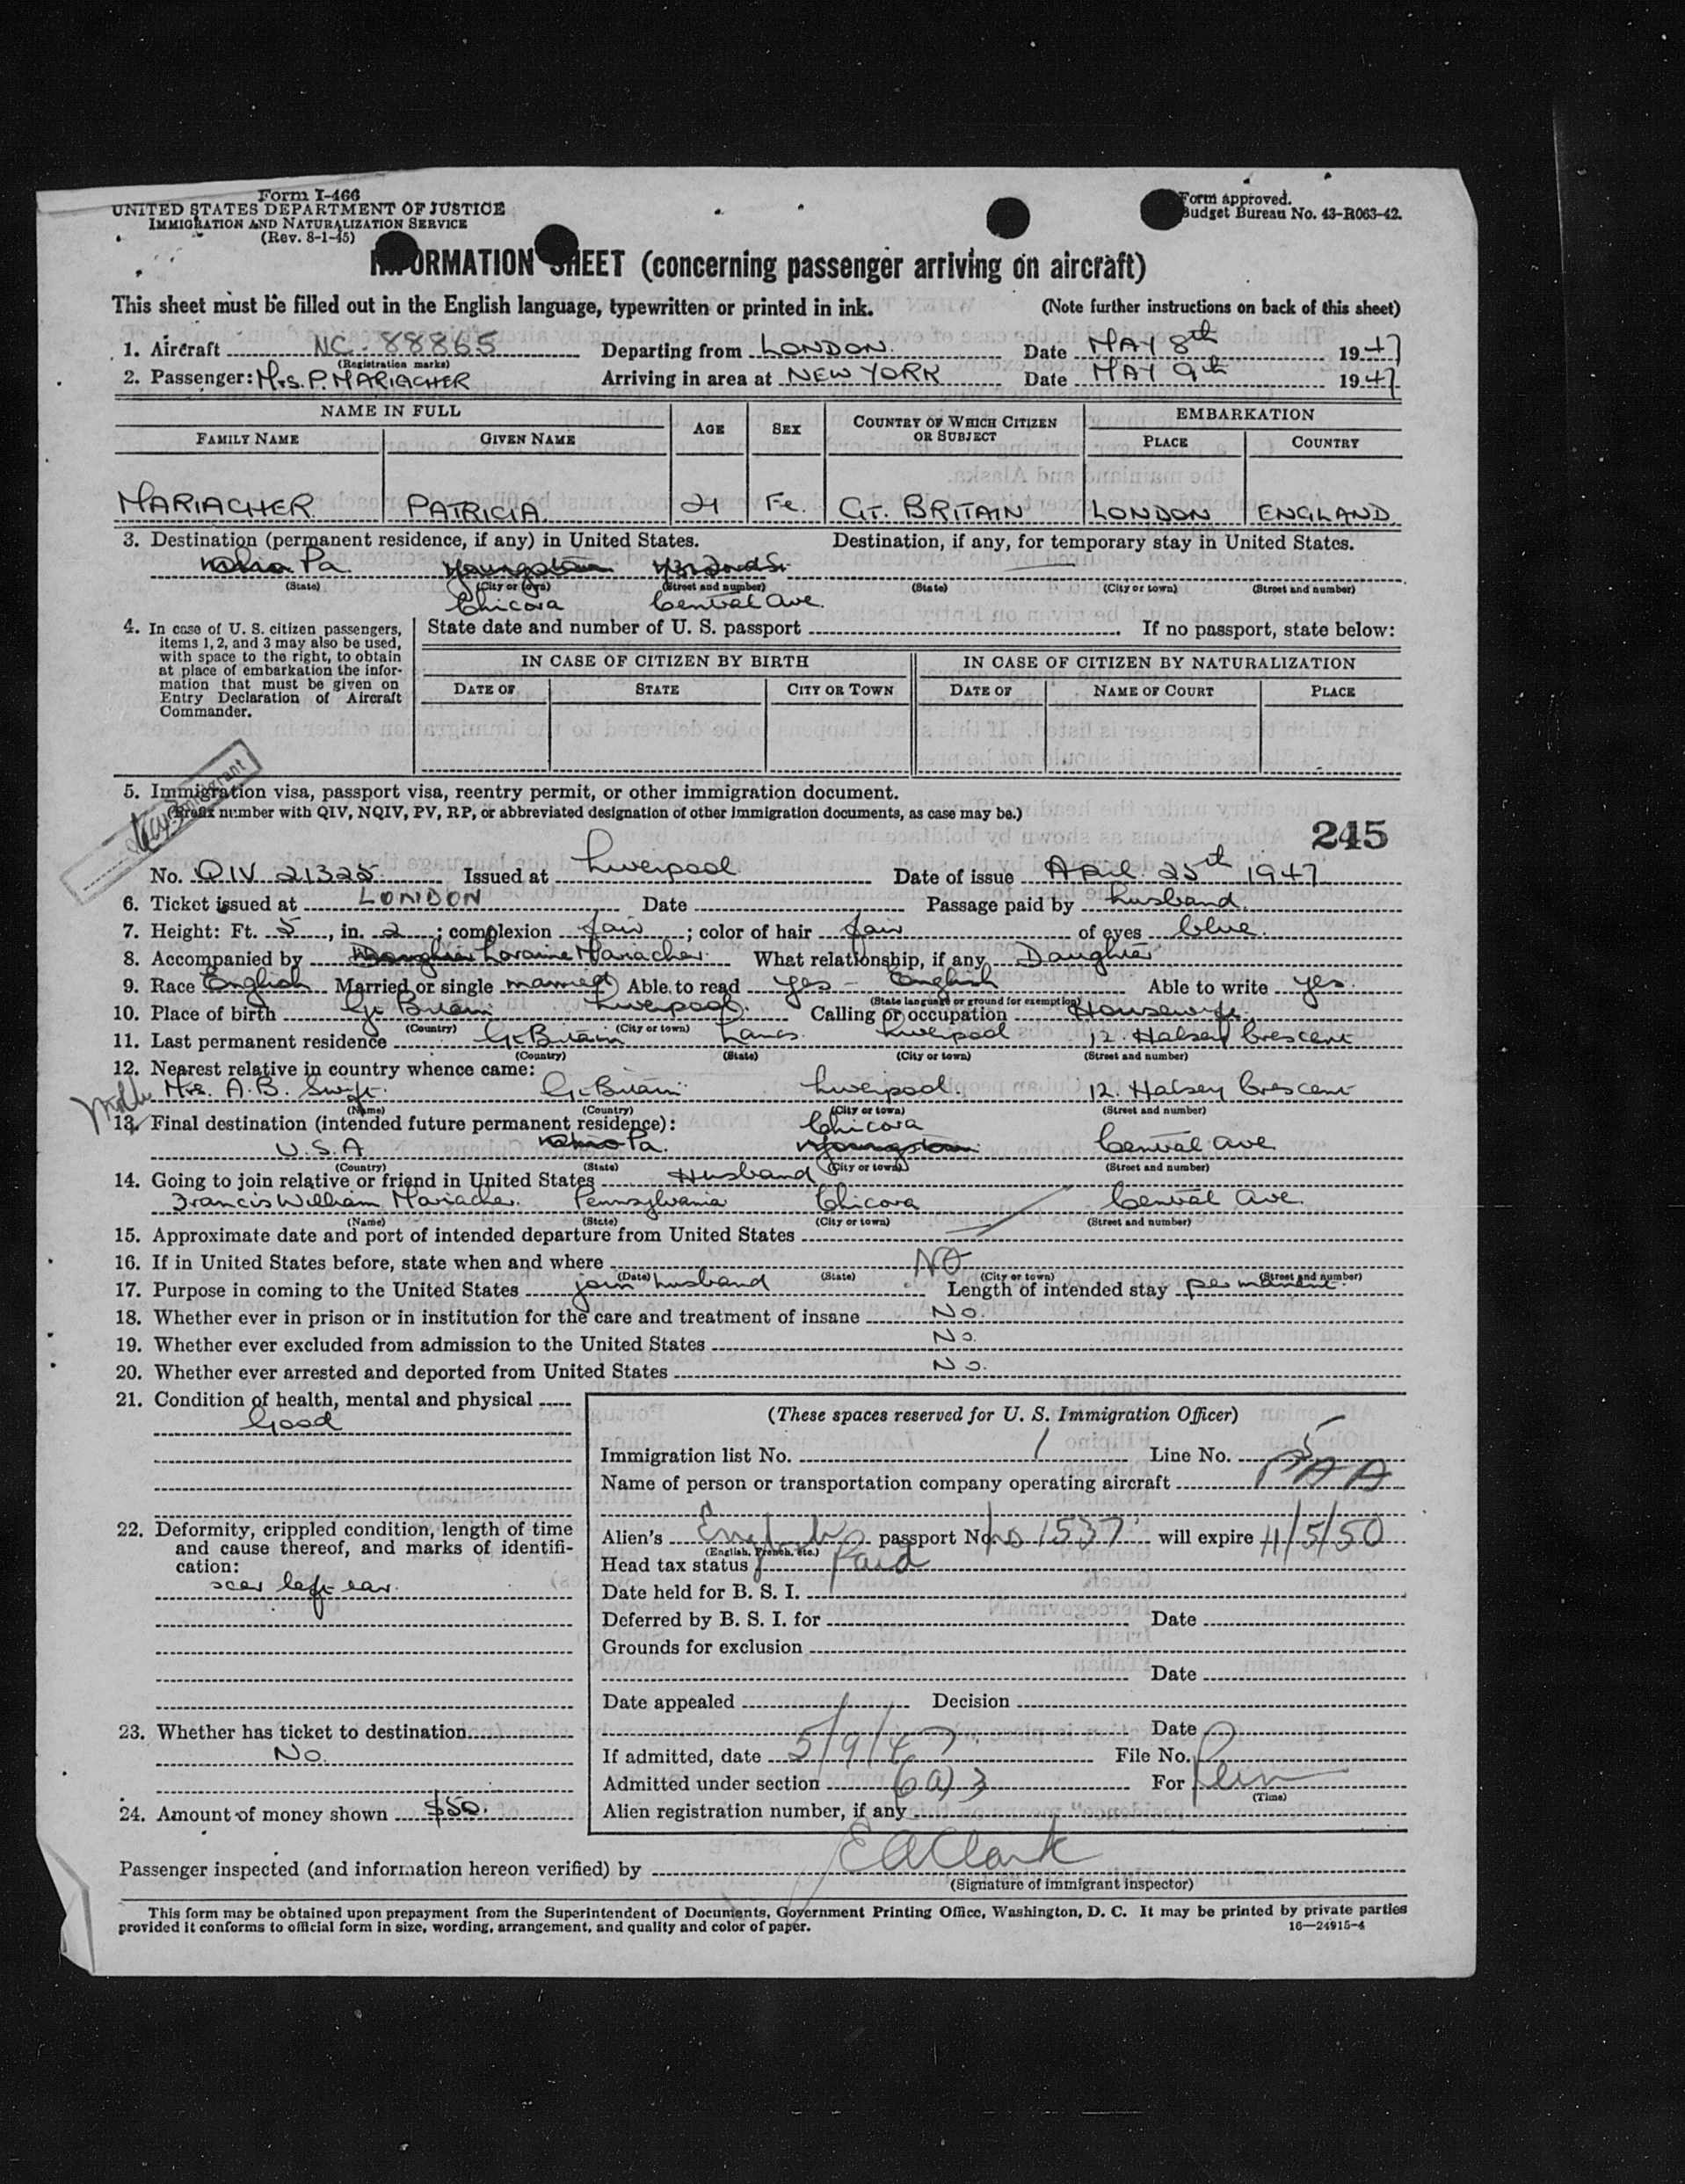 Form I-466
UNITED STATES DEPARTMENT OF JUSTICE
IMMIGRATION AND NATURALIZATION SERVICE
(Rev. 8-1-45)
Form approved.
Budget Bureau No. 43-R063-42.
INFORMATION SHEET (concerning passenger arriving on aircraft)
This sheet must be filled out in the English language, typewritten or printed in ink. (Note further instructions on back of this sheet)
1. Aircraft NC-88865 Departing from LONDON. Date MAY 8th 1947
(Registration marks)
2. Passenger: Mrs. P. MARIACHER Arriving in area at NEW YORK Date MAY 9th 1947
NAME IN FULL AGE SEX COUNTRY OF WHICH CITIZEN OR SUBJECT EMBARKATION
FAMILY NAME GIVEN NAME PLACE COUNTRY
MARIACHER PATRICIA 21 Fe. GT. BRITAIN LONDON ENGLAND
3. Destination (permanent residence, if any) in United States. Destination, if any, for temporary stay in United States.
Ohio Pa. Youngstown
(State) (City or town) (Street and number) (State) (City or town) (Street and number)
Chicora Central Ave.
4. In case of U. S. citizen passengers, items 1, 2, and 3 may also be used, with space to the right, to obtain at place of embarkation the information that must be given on Entry Declaration of Aircraft Commander.
State date and number of U. S. passport If no passport, state below:
IN CASE OF CITIZEN BY BIRTH IN CASE OF CITIZEN BY NATURALIZATION
DATE OF STATE CITY OR TOWN DATE OF NAME OF COURT PLACE
5. Immigration visa, passport visa, reentry permit, or other immigration document.
(Prefix number with QIV, NQIV, PV, RP, or abbreviated designation of other immigration documents, as case may be.)
245
No. QIV 21325 Issued at Liverpool Date of issue April 25th 1947
6. Ticket issued at LONDON Date Passage paid by husband.
7. Height: Ft. 5, in. 2; complexion fair; color of hair fair of eyes blue.
8. Accompanied by Daughter Loraine Mariacher. What relationship, if any Daughter
9. Race English Married or single married Able to read yes - English Able to write yes.
(State language or ground for exemption)
10. Place of birth Gt Britain Liverpool. Calling or occupation Housewife.
(Country) (City or town)
11. Last permanent residence Gt Britain Lancs. Liverpool 12. Halsey Crescent
(Country) (State) (City or town) (Street and number)
12. Nearest relative in country whence came:
Mother Mrs. A. B. Swift. Gt Britain Liverpool. 12. Halsey Crescent
(Name) (Country) (City or town) (Street and number)
13. Final destination (intended future permanent residence): Chicora
U.S.A. Ohio Pa. Youngstown Central Ave
(Country) (State) (City or town) (Street and number)
14. Going to join relative or friend in United States Husband
Francis William Mariacher. Pennsylvania Chicora Central Ave.
(Name) (State) (City or town) (Street and number)
15. Approximate date and port of intended departure from United States
16. If in United States before, state when and where NO
(Date) (State) (City or town) (Street and number)
17. Purpose in coming to the United States join husband Length of intended stay permanent.
18. Whether ever in prison or in institution for the care and treatment of insane No.
19. Whether ever excluded from admission to the United States No.
20. Whether ever arrested and deported from United States No.
21. Condition of health, mental and physical
Good
(These spaces reserved for U. S. Immigration Officer)
Immigration list No. 1 Line No. 5
Name of person or transportation company operating aircraft PAA
22. Deformity, crippled condition, length of time and cause thereof, and marks of identification:
scar left ear.
Alien's passport No. 1537 will expire 11/5/50
(English, French, etc.)
Head tax status Paid
Date held for B. S. I.
Deferred by B. S. I. for Date
Grounds for exclusion
Date
Date appealed Decision
23. Whether has ticket to destination
No.
Date
If admitted, date 5/9/47 File No.
Admitted under section 6(a)3 For Perm
(Time)
24. Amount of money shown $50.
Alien registration number, if any
Passenger inspected (and information hereon verified) by E A Clark
(Signature of immigrant inspector)
This form may be obtained upon prepayment from the Superintendent of Documents, Government Printing Office, Washington, D. C. It may be printed by private parties
provided it conforms to official form in size, wording, arrangement, and quality and color of paper. 16—24915-4